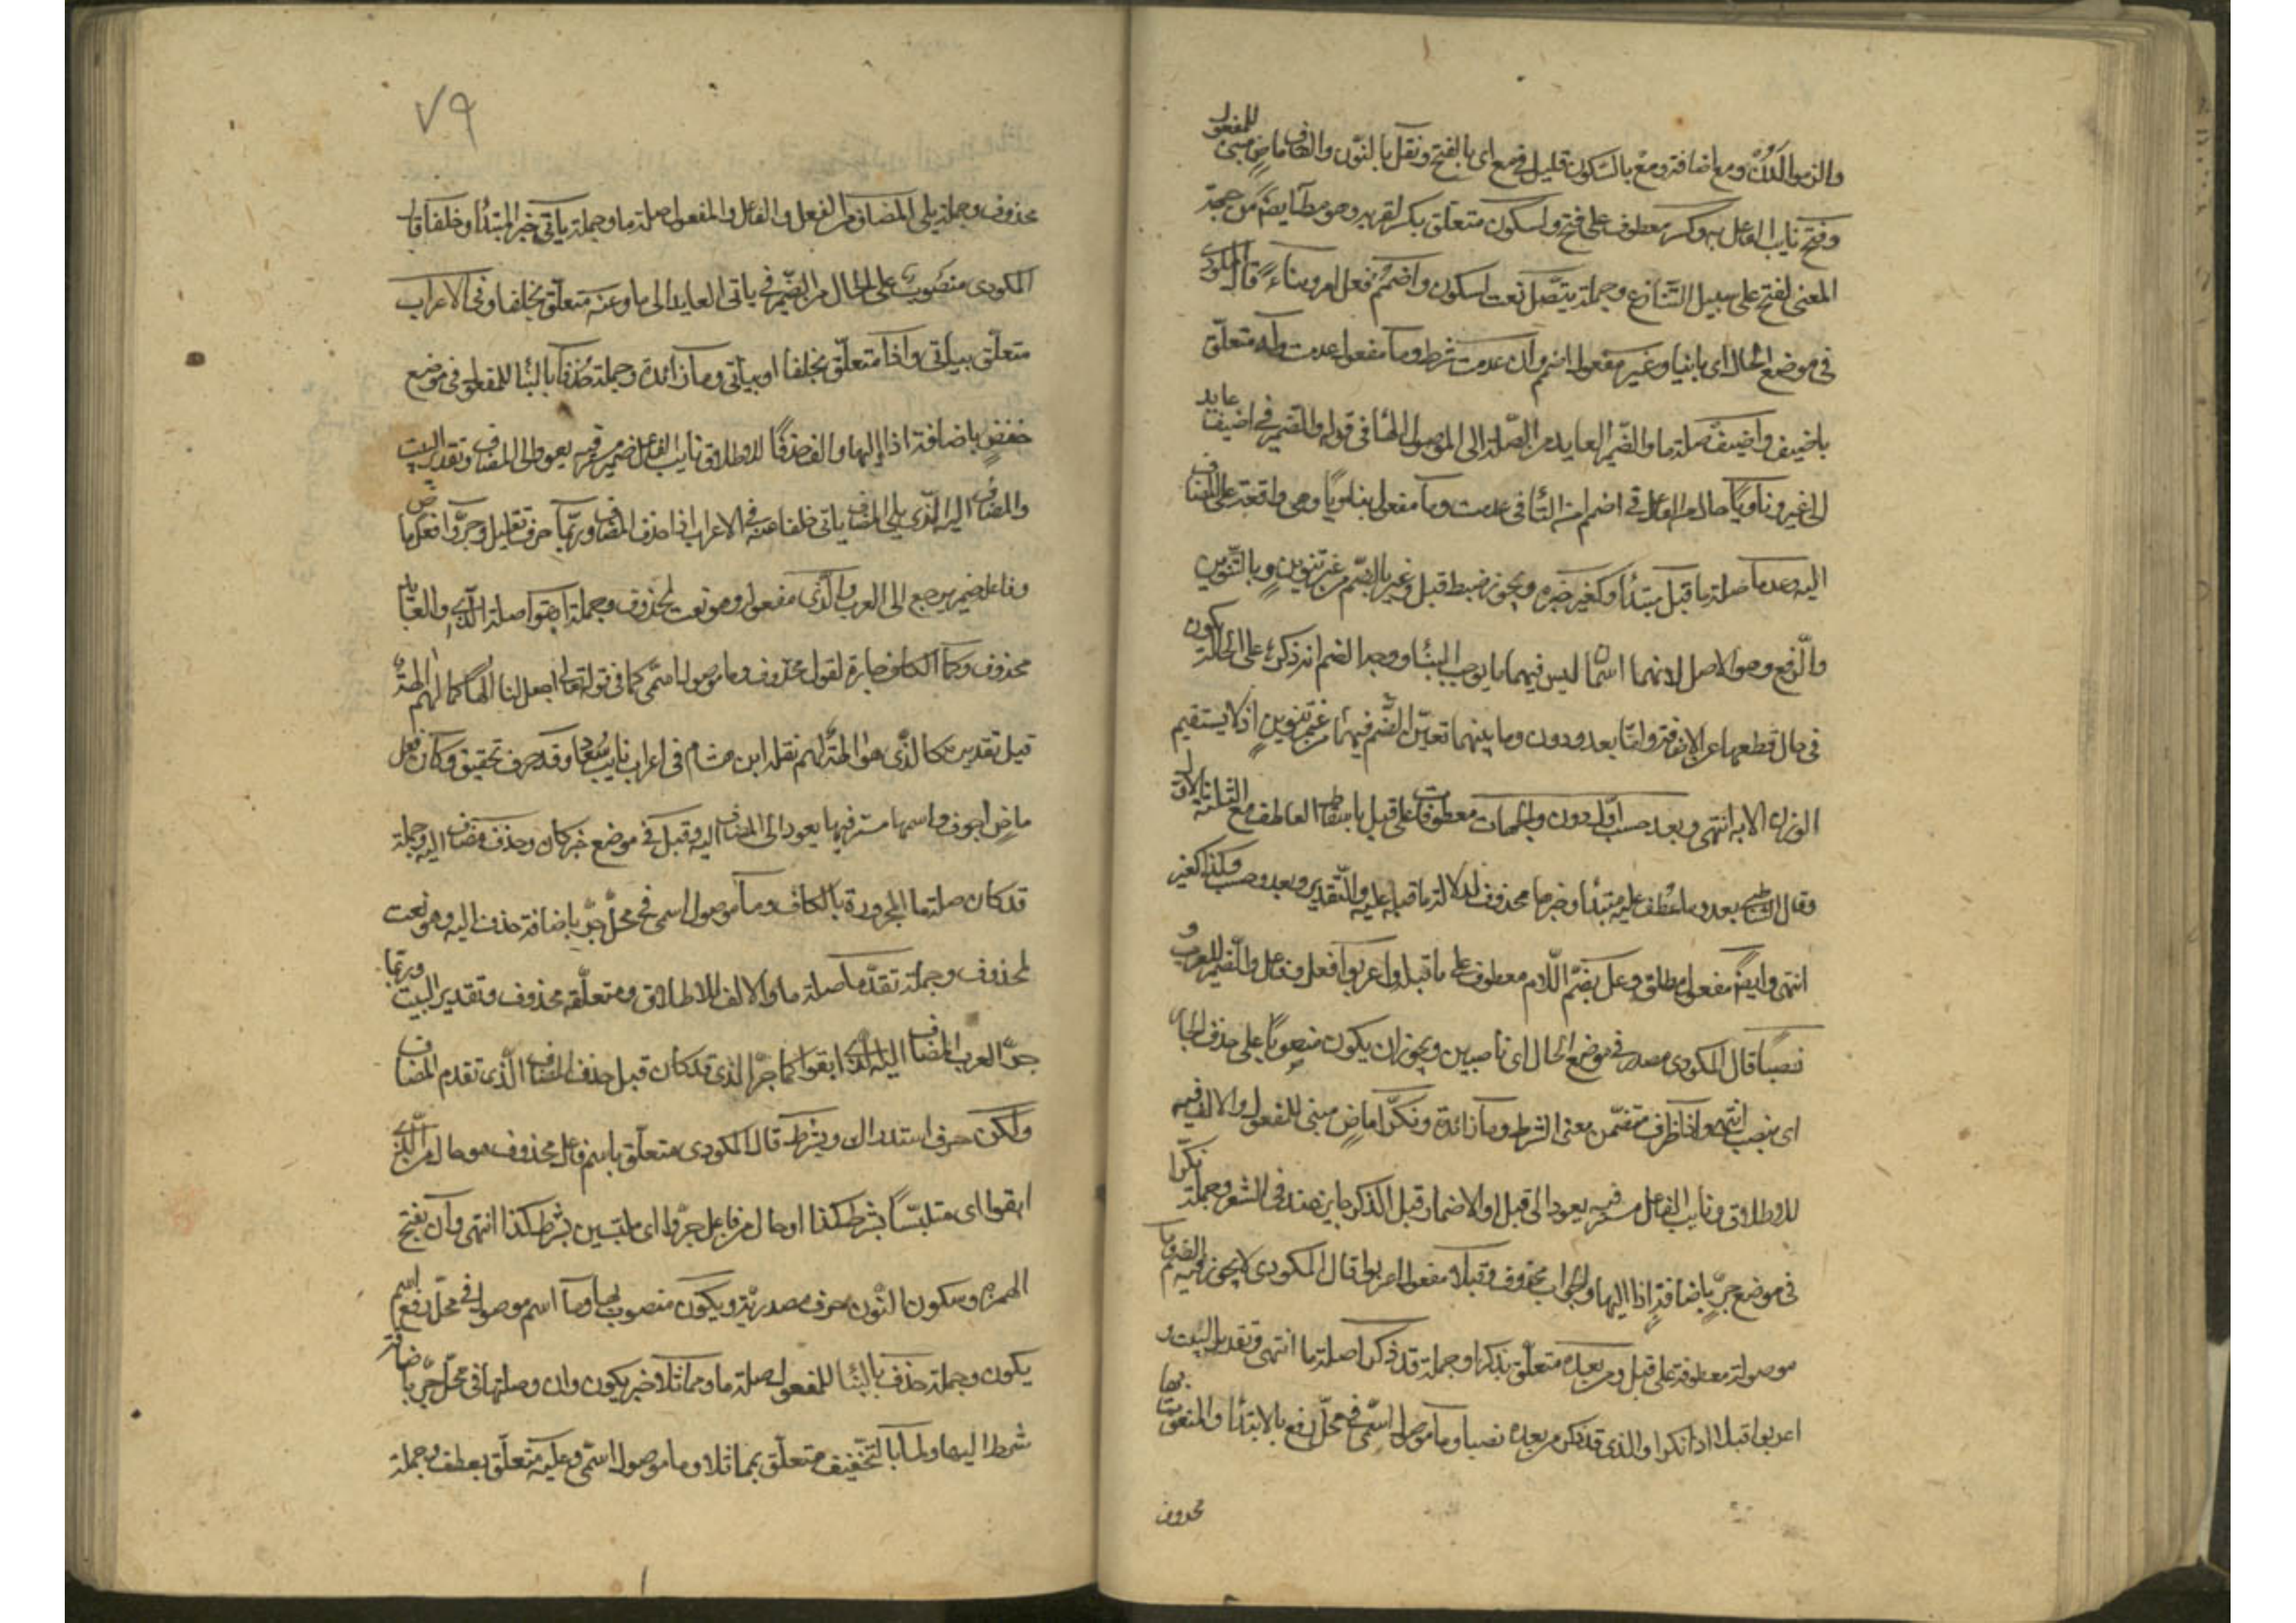 والزموا لدن ومع اضافة ومع بالسكون قليل في مع اى بالفتح ونقل بالنون والقاف ماض مبنى للمفعول
وفتح نايب الفاعل به وكسر معطوف على فتح ولسكون متعلق بكسر لقربه وهو مطلب ايضا من جهة
المعنى لفتح على سبيل التنازع وجملة يتصل نعت لسكون واضمم فعل امر وبناء قال المكودى
فى موضع الحال اى بانيا وغير مفعول اضمم وان عدمت شرط وما مفعول عدمت وله متعلق
باضيف واضيف صلة ما والضمير العايد من الصلة الى الموصول الها فى قوله له والضمير فى اضيف عايد
الى غير وناويا حال من الفاعل فى اضمم او من التا فى عدمت وما مفعول بناويا وهى واقعة على المضاف
اليه وعدما صلة ما قبل مبتدأ وكغير خبره ويجوز ضبط قبل وغير بالضم من غير تنوين وبالتنوين
والرفع وهو الاصل لانهما اسمان ليس فيهما ما يوجب البناء ووجه الضم انه ذكره على الحالة يكون
فى حال قطعها عن الاضافة واما بعد ودون وما بينهما تعين الضم فيها من غير تنوين اذ لا يستقيم
الوزن الا به انتهى وبعد حسب اول ودون والجهات معطوفات على قبل باسقاط العاطف مع الثلثة الاول
وقال الشاطبى بعد وما عطف عليه مبتدأ وخبرها محذوف لدلالة ما قبله عليه والتقدير وبعد وحسب وكذا كغير
انتهى وايضا مفعول مطلق وعل بضم اللام معطوف على ما قبله واعربوا فعل وفاعل والضمير للعرب و
نصبا قال المكودى مصدر فى موضع الحال اى ناصبين ويجوز ان يكون منصوبا على حذف الجار
اى بنصب انتهى واذا ظرف متضمن معنى الشرط وما زائدة ونكرا ماض مبنى للمفعول والالف فيه
للاطلاق ونايب الفاعل مستتر فيه يعود الى قبل والاضمار قبل الذكر جايز عنده فى الشعر وجملة نكرا
فى موضع جر باضافة اذا اليها والجواب محذوف وقبلا مفعول اعربوا قال المكودى لا يجوز فيه الضم وما
موصولة معطوفة على قبل ومن بعده متعلق بذكرا وجملة قد ذكرا صلة ما انتهى وتقدير البيت و
اعربوا قبلا اذا نكرا والذى قد ذكر من بعده نصبا وما موصول اسمى فى محل رفع بالابتداء والمنعوت بها
محذوف
٧٩
محذوف وجملة يلى المضاف من الفعل والفاعل والمفعول صلة ما وجملة يأتى خبر المبتدأ وخلفا قال
المكودى منصوب على الحال من الضمير فى ياتى العايد الى ما وعنه متعلق بخلفا وفى الاعراب
متعلق بيأتى واذا متعلق بخلفا او بيأتى وما زائدة وجملة حذفا بالبنا للمفعول فى موضع
خفض باضافة اذا اليها والف حذفا للاطلاق نايب الفاعل ضمير فيه يعود الى المضاف وتقدير البيت
والمضاف اليه الذى يلى المضاف ياتى خلفا عنه فى الاعراب اذا حذف المضاف وربما حرف تقليل وجروا فعل ماض
وفاعله ضمير يرجع الى العرب والذى مفعوله وهو نعت لمحذوف وجملة ابقوا صلة الذى والعايد
محذوف وكما الكاف جارة لقول محذوف وما موصول اسمى كما فى قوله تعالى اجعل لنا الها كما لهم الهة
قيل تقديره كالذى هو الهة لهم نقله ابن هشام فى اعراب نايب سعاد وقد حرف تحقيق وكان فعل
ماض اجوف واسمها مستتر فيها يعود الى المضاف اليه وقبل فى موضع خبر كان وحذف مضاف اليه وجملة
قد كان صلة ما المجرورة بالكاف وما موصول اسمى فى محل جر باضافة حذف اليه وهو نعت
لمحذوف وجملة تقدما صلة ما والالف للاطلاق ومتعلقه محذوف وتقدير البيت وربما
جر العرب المضاف اليه الذى ابقوا كما جر الذى قد كان قبل حذف المضاف الذى تقدم المضاف
ولكن حرف استدراك وبشرط قال المكودى متعلق باسم فاعل محذوف هو حال من الذى
ابقوا اى متلبسا بشرط كذا او حال من فاعل جروا اى ملتبسين بشرط كذا انتهى وان بفتح
الهمزه وسكون النون حرف مصدرية ويكون منصوب بها وما اسم موصول فى محل رفع اسم
يكون وجملة حذف بالبنا للمفعول صلة ما ومماثلا خبر يكون وان وصلتها فى محل جر باضافة
شرط اليها ولما بالتخفيف متعلق بمماثلا وما موصول اسمى وعليه متعلق بعطف وجملة